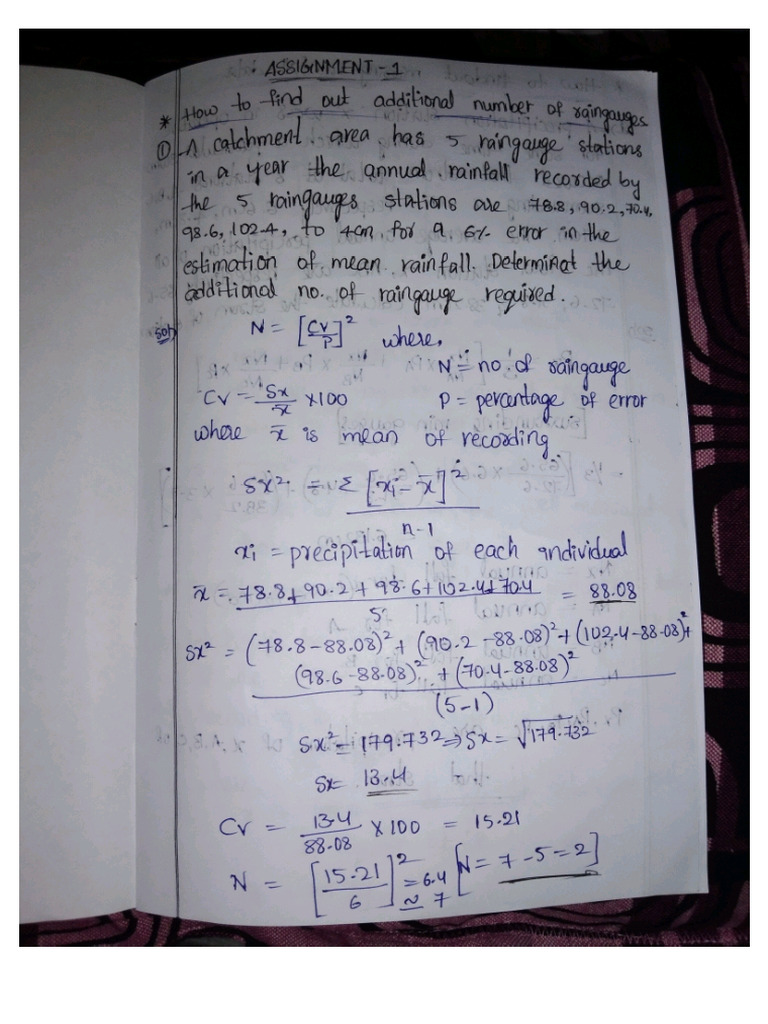 ASSIGNMENT-1
* How to find out additional number of raingauges
① A catchment area has 5 raingauge stations
in a year the annual rainfall recorded by
the 5 raingauges stations are 78.8, 90.2, 70.4,
98.6, 102.4, to 4cm for a 6% error in the
estimation of mean rainfall. Determinat the
additional no. of raingauge required.
Sol) N = [Cv/P]² where,
N = no. of raingauge
Cv = Sx/x̄ ×100 P = percentage of error
where x̄ is mean of recording
Sx² = Σ [xi - x̄]² / n-1
xi = precipitation of each individual
x̄ = 78.8+90.2+98.6+102.4+70.4 / 5 = 88.08
Sx² = (78.8-88.08)² + (90.2-88.08)² + (102.4-88.08)² +
(98.6-88.08)² + (70.4-88.08)²
(5-1)
Sx² = 179.732 ⇒ Sx = √179.732
Sx = 13.4
Cv = 13.4/88.08 × 100 = 15.21
N = [15.21/6]² = 6.4 ≈ 7 [N = 7-5 = 2]